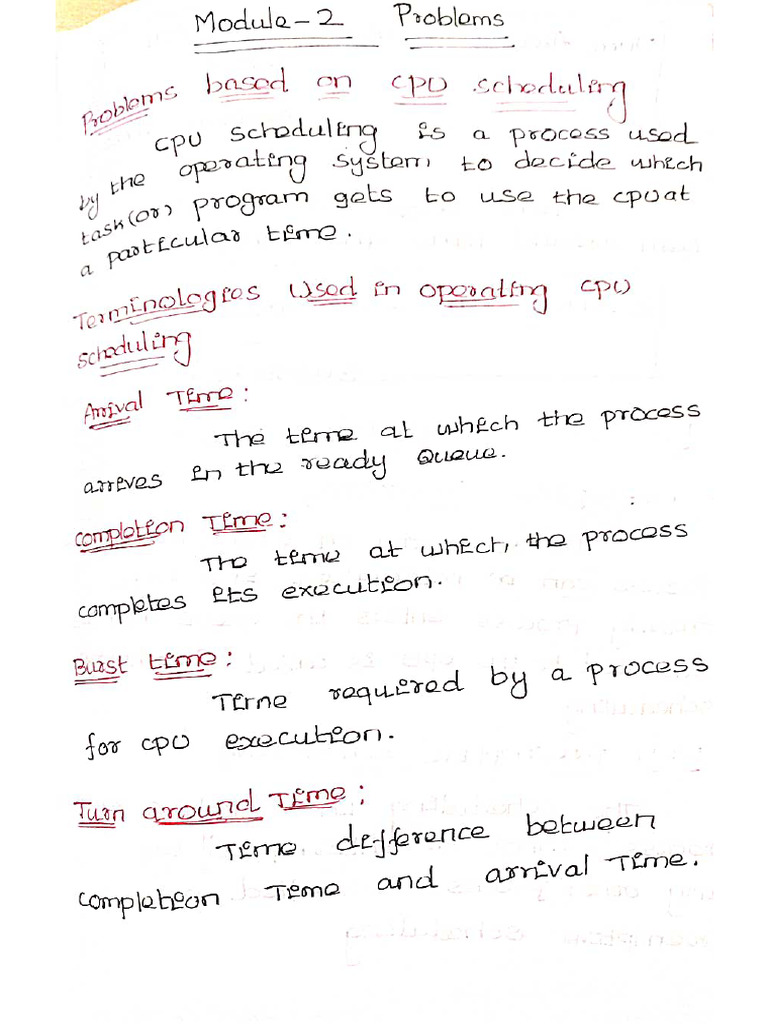 Module-2 Problems
Problems based on CPU scheduling
CPU scheduling is a process used
by the operating system, to decide which
task(or) program gets to use the cpu at
a particular time.
Terminologies Used in operating CPU
scheduling
Arrival Time:
The time at which the process
arrives in the ready Queue.
completion Time:
The time at which, the process
completes its execution.
Burst time:
Time required by a process
for CPU execution.
Turn around Time:
Time difference between
completion Time and arrival Time.